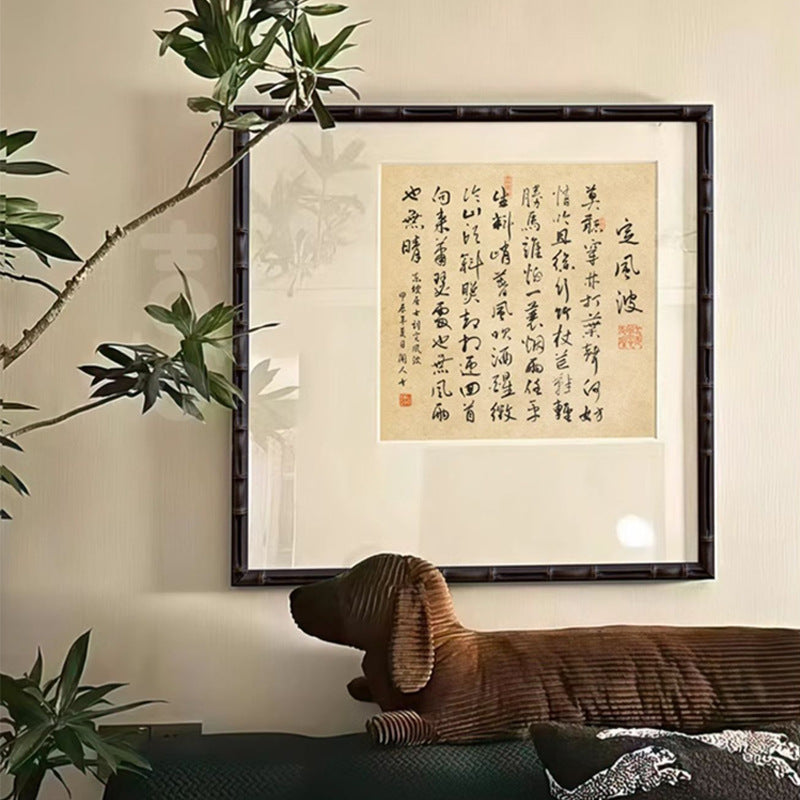 定風波
莫聽穿林打葉聲何妨
吟且徐行竹杖芒鞋輕
勝馬誰怕一蓑烟雨任平
生料峭春風吹酒醒微
冷山頭斜照却相迎回首
向來蕭瑟處也無風雨
也無晴
東坡居士詞定風波
甲辰年夏日